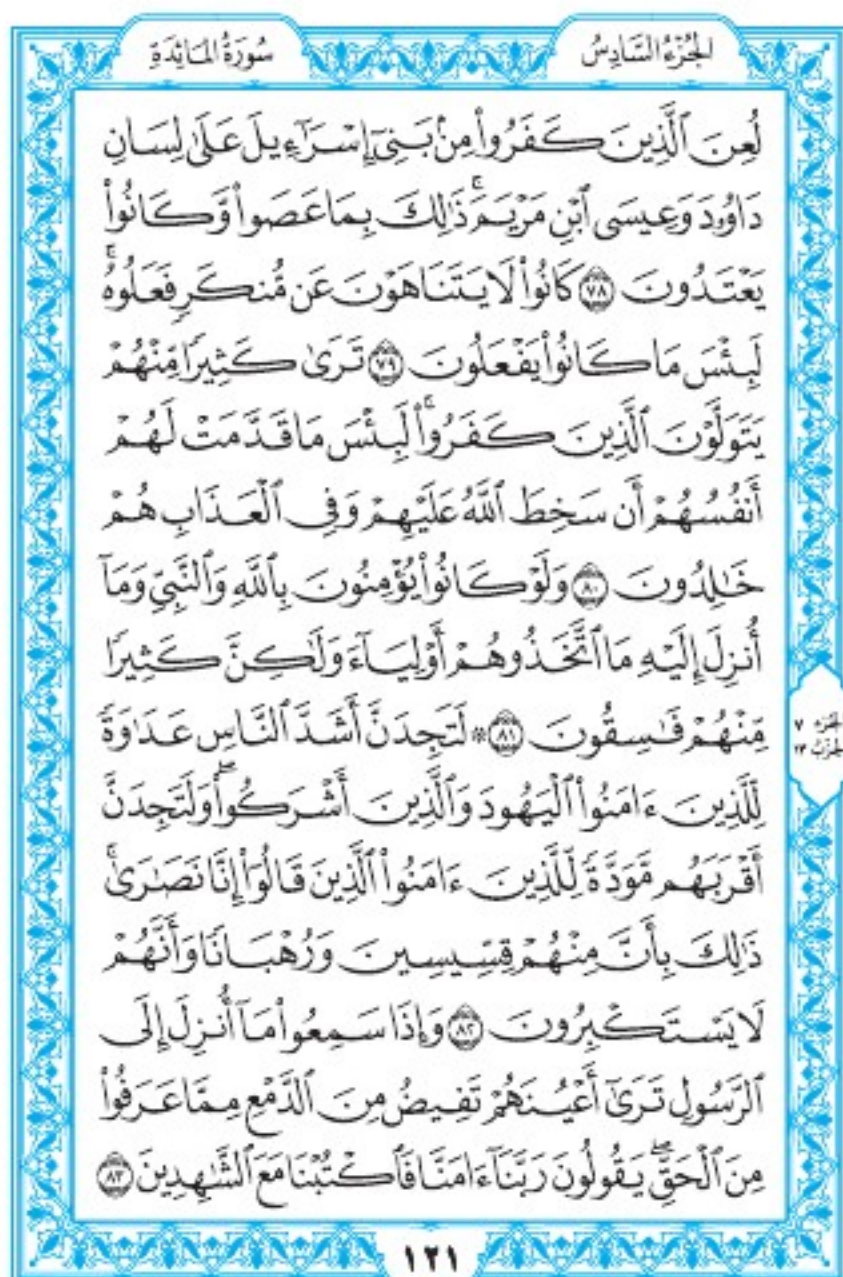 الجُزْءُ السَّادِسُ
سُورَةُ المَائِدَةِ
لُعِنَ ٱلَّذِينَ كَفَرُوا۟ مِنۢ بَنِىٓ إِسْرَٰٓءِيلَ عَلَىٰ لِسَانِ
دَاوُۥدَ وَعِيسَى ٱبْنِ مَرْيَمَ ۚ ذَٰلِكَ بِمَا عَصَوا۟ وَّكَانُوا۟
يَعْتَدُونَ ٧٨ كَانُوا۟ لَا يَتَنَاهَوْنَ عَن مُّنكَرٍ فَعَلُوهُ ۚ
لَبِئْسَ مَا كَانُوا۟ يَفْعَلُونَ ٧٩ تَرَىٰ كَثِيرًا مِّنْهُمْ
يَتَوَلَّوْنَ ٱلَّذِينَ كَفَرُوا۟ ۚ لَبِئْسَ مَا قَدَّمَتْ لَهُمْ
أَنفُسُهُمْ أَن سَخِطَ ٱللَّهُ عَلَيْهِمْ وَفِى ٱلْعَذَابِ هُمْ
خَٰلِدُونَ ٨٠ وَلَوْ كَانُوا۟ يُؤْمِنُونَ بِٱللَّهِ وَٱلنَّبِىِّ وَمَآ
أُنزِلَ إِلَيْهِ مَا ٱتَّخَذُوهُمْ أَوْلِيَآءَ وَلَٰكِنَّ كَثِيرًا
مِّنْهُمْ فَٰسِقُونَ ٨١ ۞ لَتَجِدَنَّ أَشَدَّ ٱلنَّاسِ عَدَٰوَةً
لِّلَّذِينَ ءَامَنُوا۟ ٱلْيَهُودَ وَٱلَّذِينَ أَشْرَكُوا۟ ۖ وَلَتَجِدَنَّ
أَقْرَبَهُم مَّوَدَّةً لِّلَّذِينَ ءَامَنُوا۟ ٱلَّذِينَ قَالُوٓا۟ إِنَّا نَصَٰرَىٰ ۚ
ذَٰلِكَ بِأَنَّ مِنْهُمْ قِسِّيسِينَ وَرُهْبَانًا وَأَنَّهُمْ
لَا يَسْتَكْبِرُونَ ٨٢ وَإِذَا سَمِعُوا۟ مَآ أُنزِلَ إِلَى
ٱلرَّسُولِ تَرَىٰٓ أَعْيُنَهُمْ تَفِيضُ مِنَ ٱلدَّمْعِ مِمَّا عَرَفُوا۟
مِنَ ٱلْحَقِّ ۖ يَقُولُونَ رَبَّنَآ ءَامَنَّا فَٱكْتُبْنَا مَعَ ٱلشَّٰهِدِينَ ٨٣
الجزء ٧
الحزب ١٣
١٢١